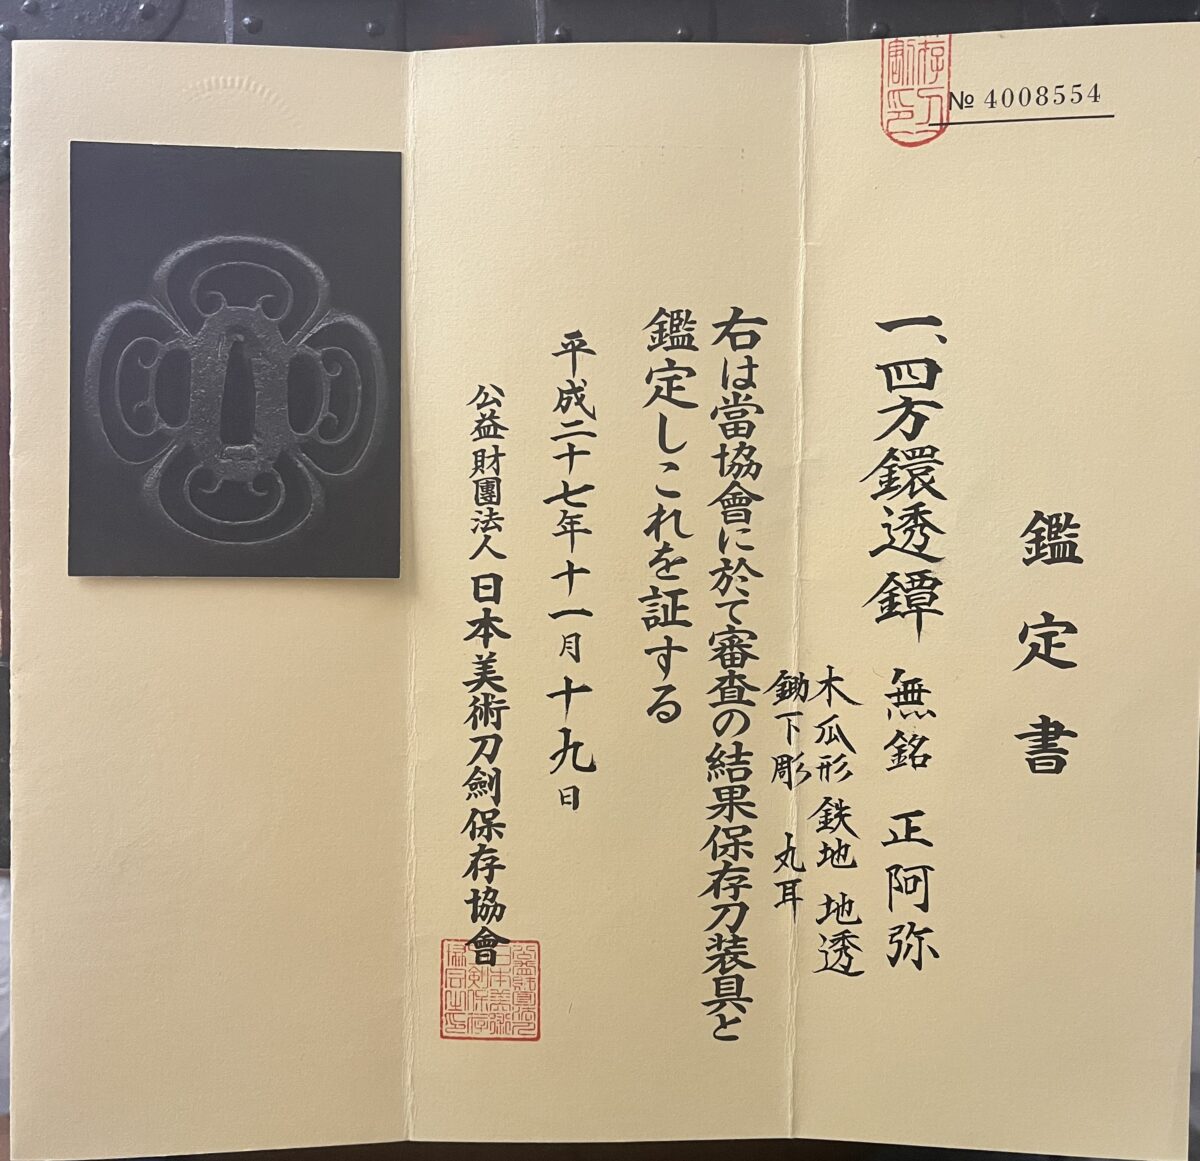 № 4008554
鑑定書
一、四方鐶透鐔 無銘 正阿弥
木瓜形 鉄地 地透
鋤下彫 丸耳
右は當協會に於て審査の結果保存刀装具と
鑑定しこれを証する
平成二十七年十一月十九日
公益財團法人 日本美術刀劍保存協會